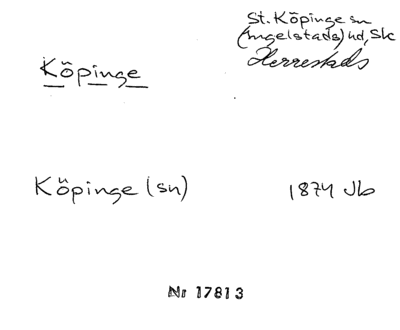 St. Köpinge sn
(Ingelstads) hd, Sk
Köpinge
Herrestads
Köpinge (sn)
1874 Jb
Nr 17813